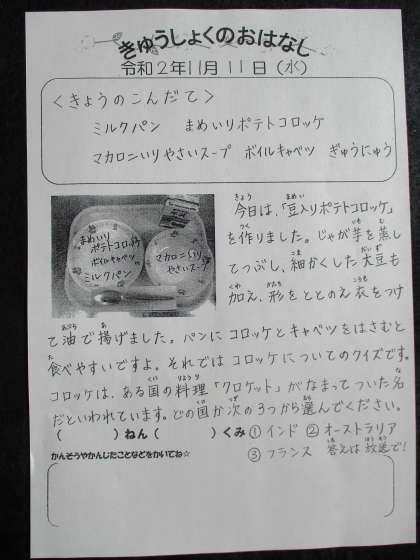 きゅうしょくのおはなし
令和2年11月11日(水)
<きょうのこんだて>
ミルクパン まめいりポテトコロッケ
マカロニいりやさいスープ ボイルキャベツ ぎゅうにゅう
まめいり
ポテトコロッケ
ボイルキャベツ
ミルクパン
マカロニいり
やさいスープ
今日は、「豆入りポテトコロッケ」
を作りました。じゃが芋を蒸し
てつぶし、細かくした大豆も
加え、形をととのえ衣をつけ
て油で揚げました。パンにコロッケとキャベツをはさむと
食べやすいですよ。それではコロッケについてのクイズです。
コロッケは、ある国の料理「クロケット」がなまってついた名
だといわれています。どの国か次の3つから選んでください。
( )ねん( )くみ ①インド ②オーストラリア
③フランス 答えは放送で!
かんそうやかんじたことなどをかいてね☆